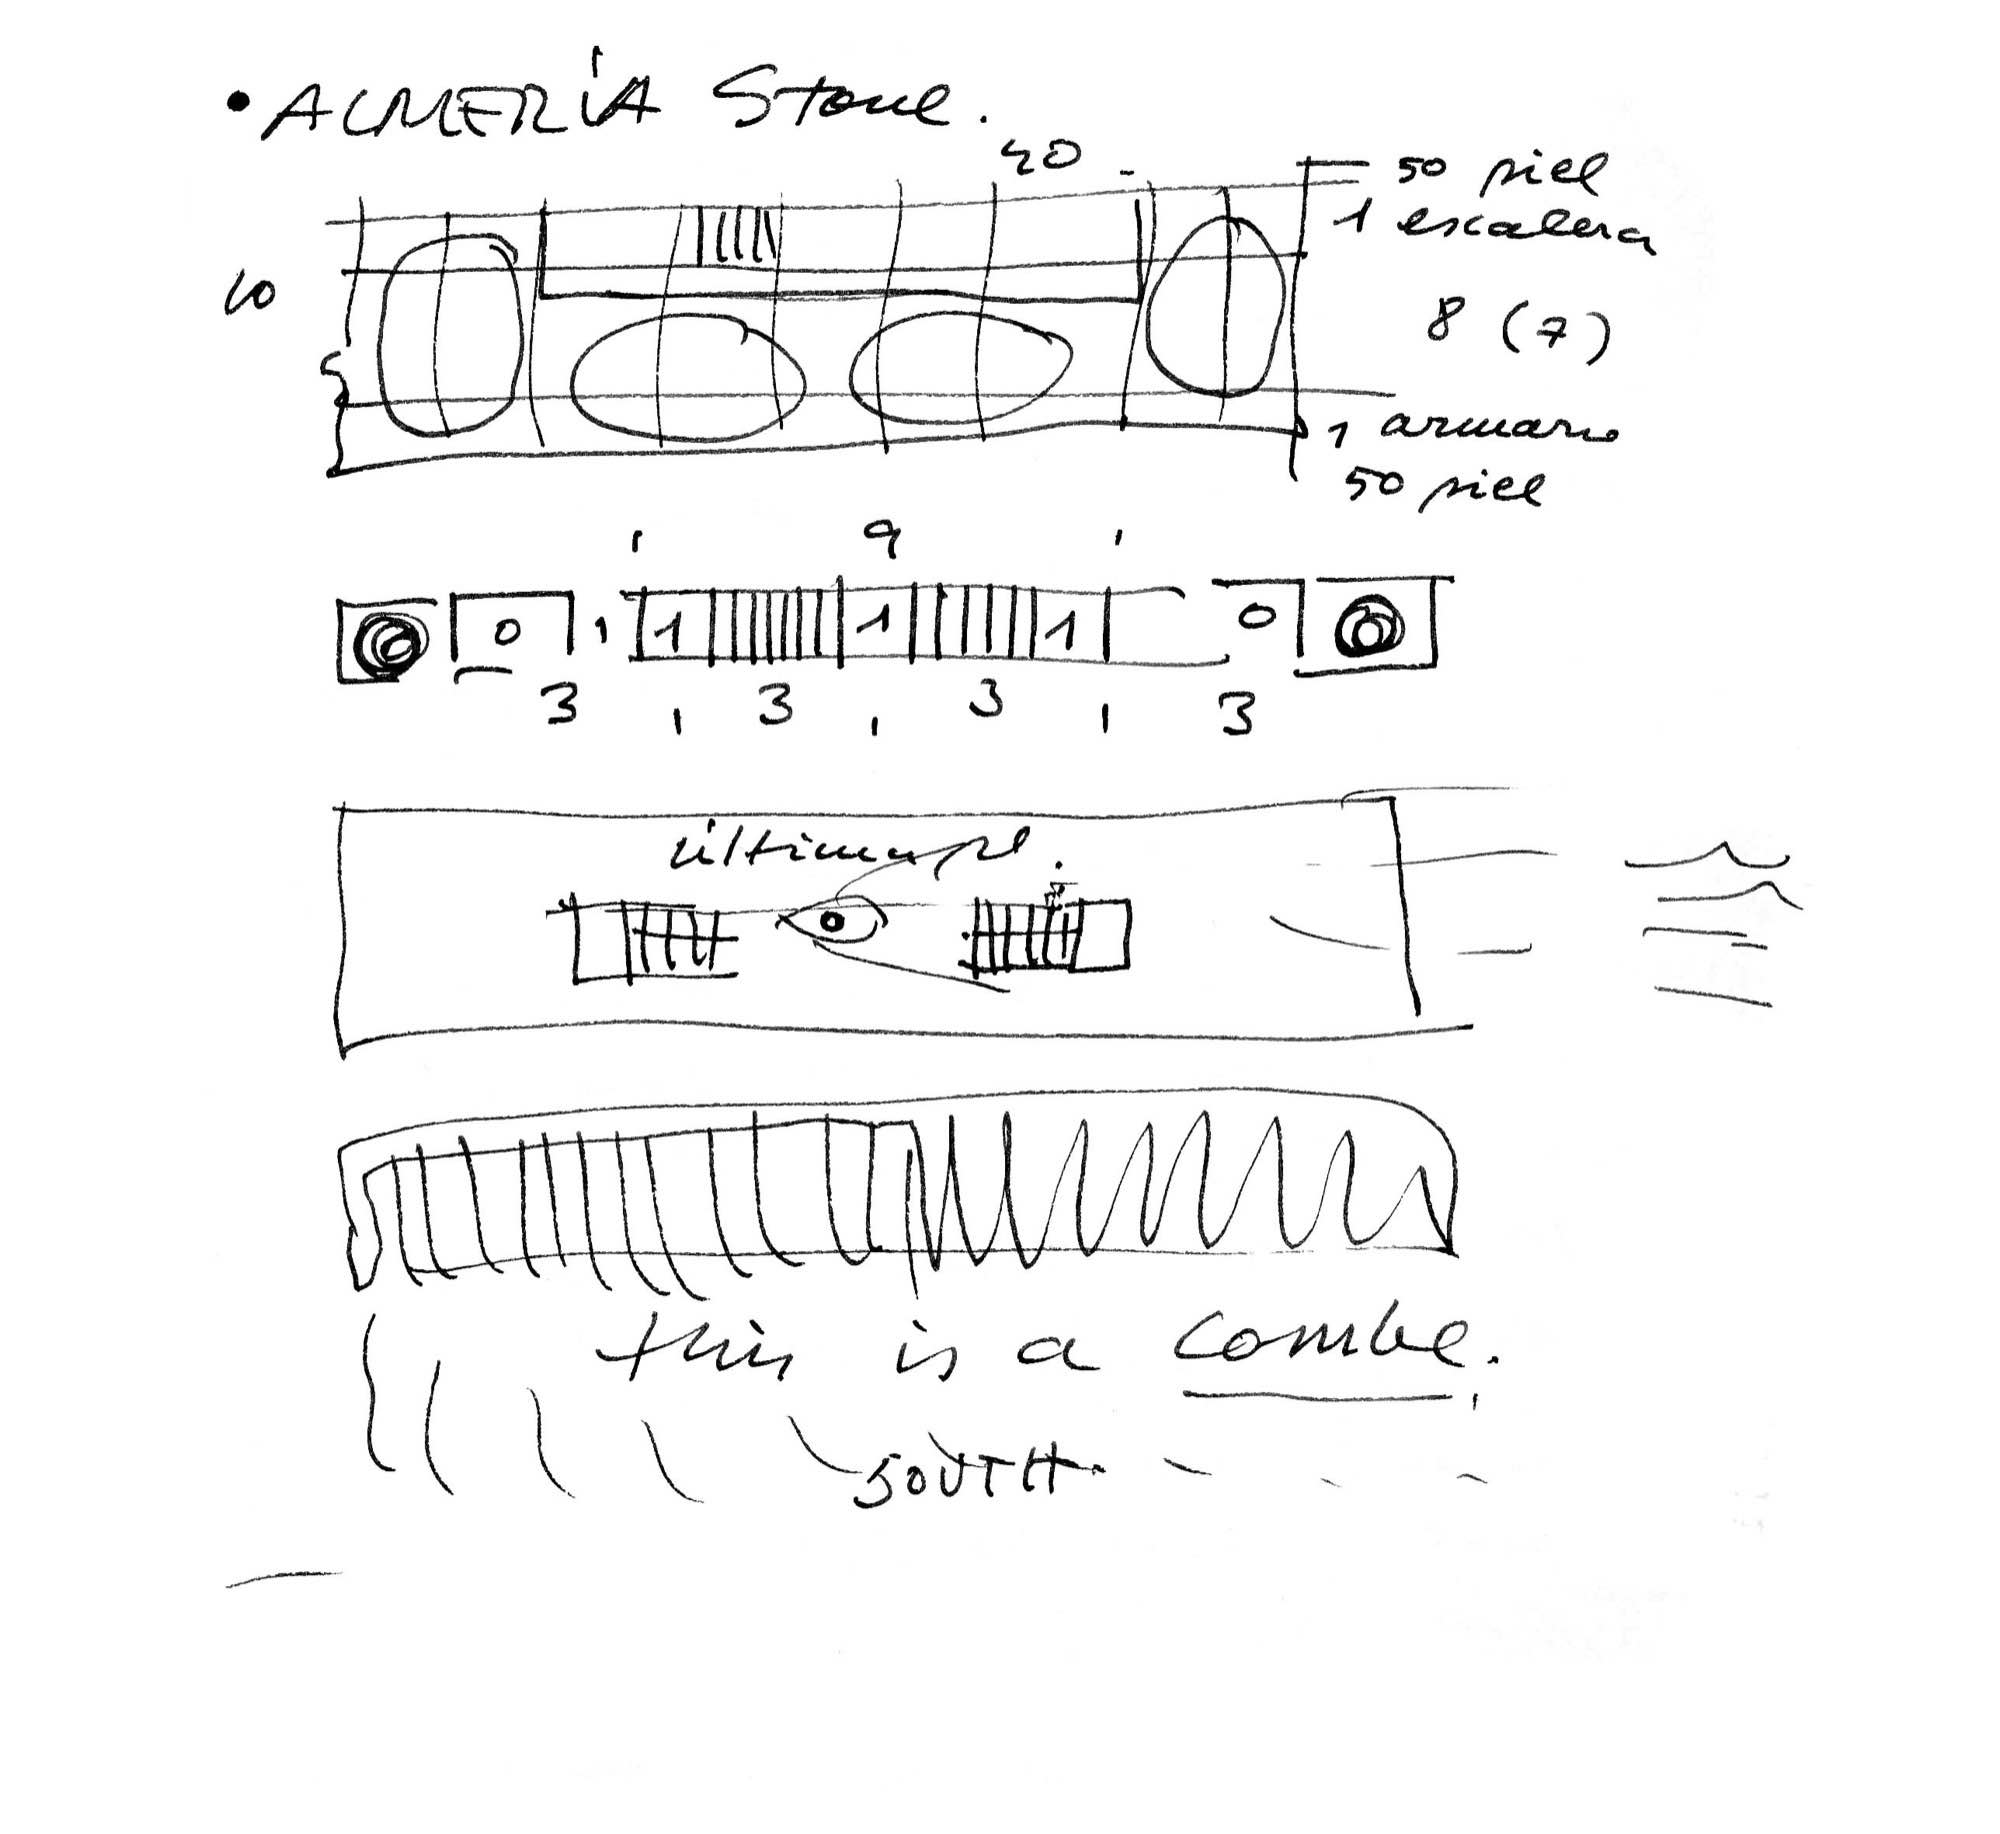 • ALMERÍA Stone.
40
50 piel
1 escalera
10
8 (7)
1 armario
50 piel
9
0 1 1 1 1 0
3 3 3 3
última pl.
this is a combe.
SOUTH